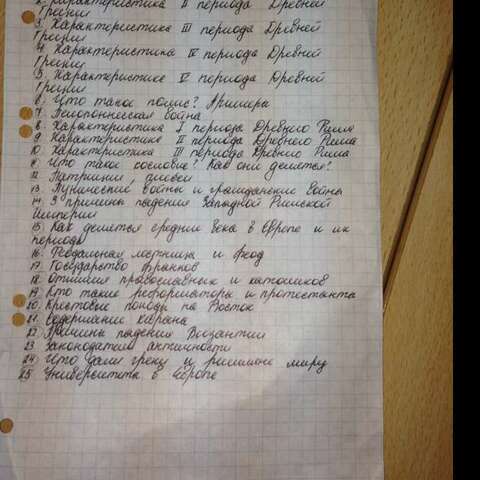 2. Характеристика II периода Древней
Греции
3. Характеристика III периода Древней
Греции
4. Характеристика IV периода Древней
Греции
5. Характеристике V периода Древней
Греции
6. Что такое полис? Примеры
7. Пелопонесская война
8. Характеристика I периода Древнего Рима
9. Характеристика II периода Древнего Рима
10. Характеристика III периода Древнего Рима
11. Что такое сословие? Как они делятся?
12. Патриции, плебеи
13. Пунические войны и гражданские войны
14. 3 причины падения Западной Римской
Империи
15. Как делятся средние века в Европе и их
периоды
16. Феодальная лестница и феод
17. Государство франков
18. Отличия православных и католиков
19. Кто такие реформаторы и протестанты
20. Крестовые походы на Восток
21. Содержание Корана
22. Причины падения Византии
23. Законодатели античности
24. Что дали греки и римляне миру
25. Университеты в Европе